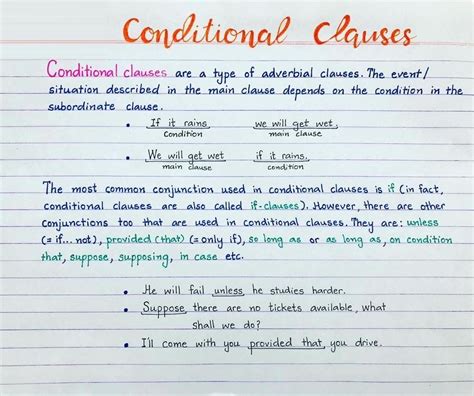 Conditional Clauses
Conditional clauses are a type of adverbial clauses. The event/
situation described in the main clause depends on the condition in the
subordinate clause.
• If it rains, we will get wet.
condition main clause
• We will get wet if it rains.
main clause condition
The most common conjunction used in conditional clauses is if (in fact,
conditional clauses are also called if-clauses). However, there are other
conjunctions too that are used in conditional clauses. They are: unless
(= if... not), provided (that) (= only if), so long as or as long as, on condition
that, suppose, supposing, in case etc.
• He will fail unless he studies harder.
• Suppose there are no tickets available, what
shall we do?
• I'll come with you provided that you drive.